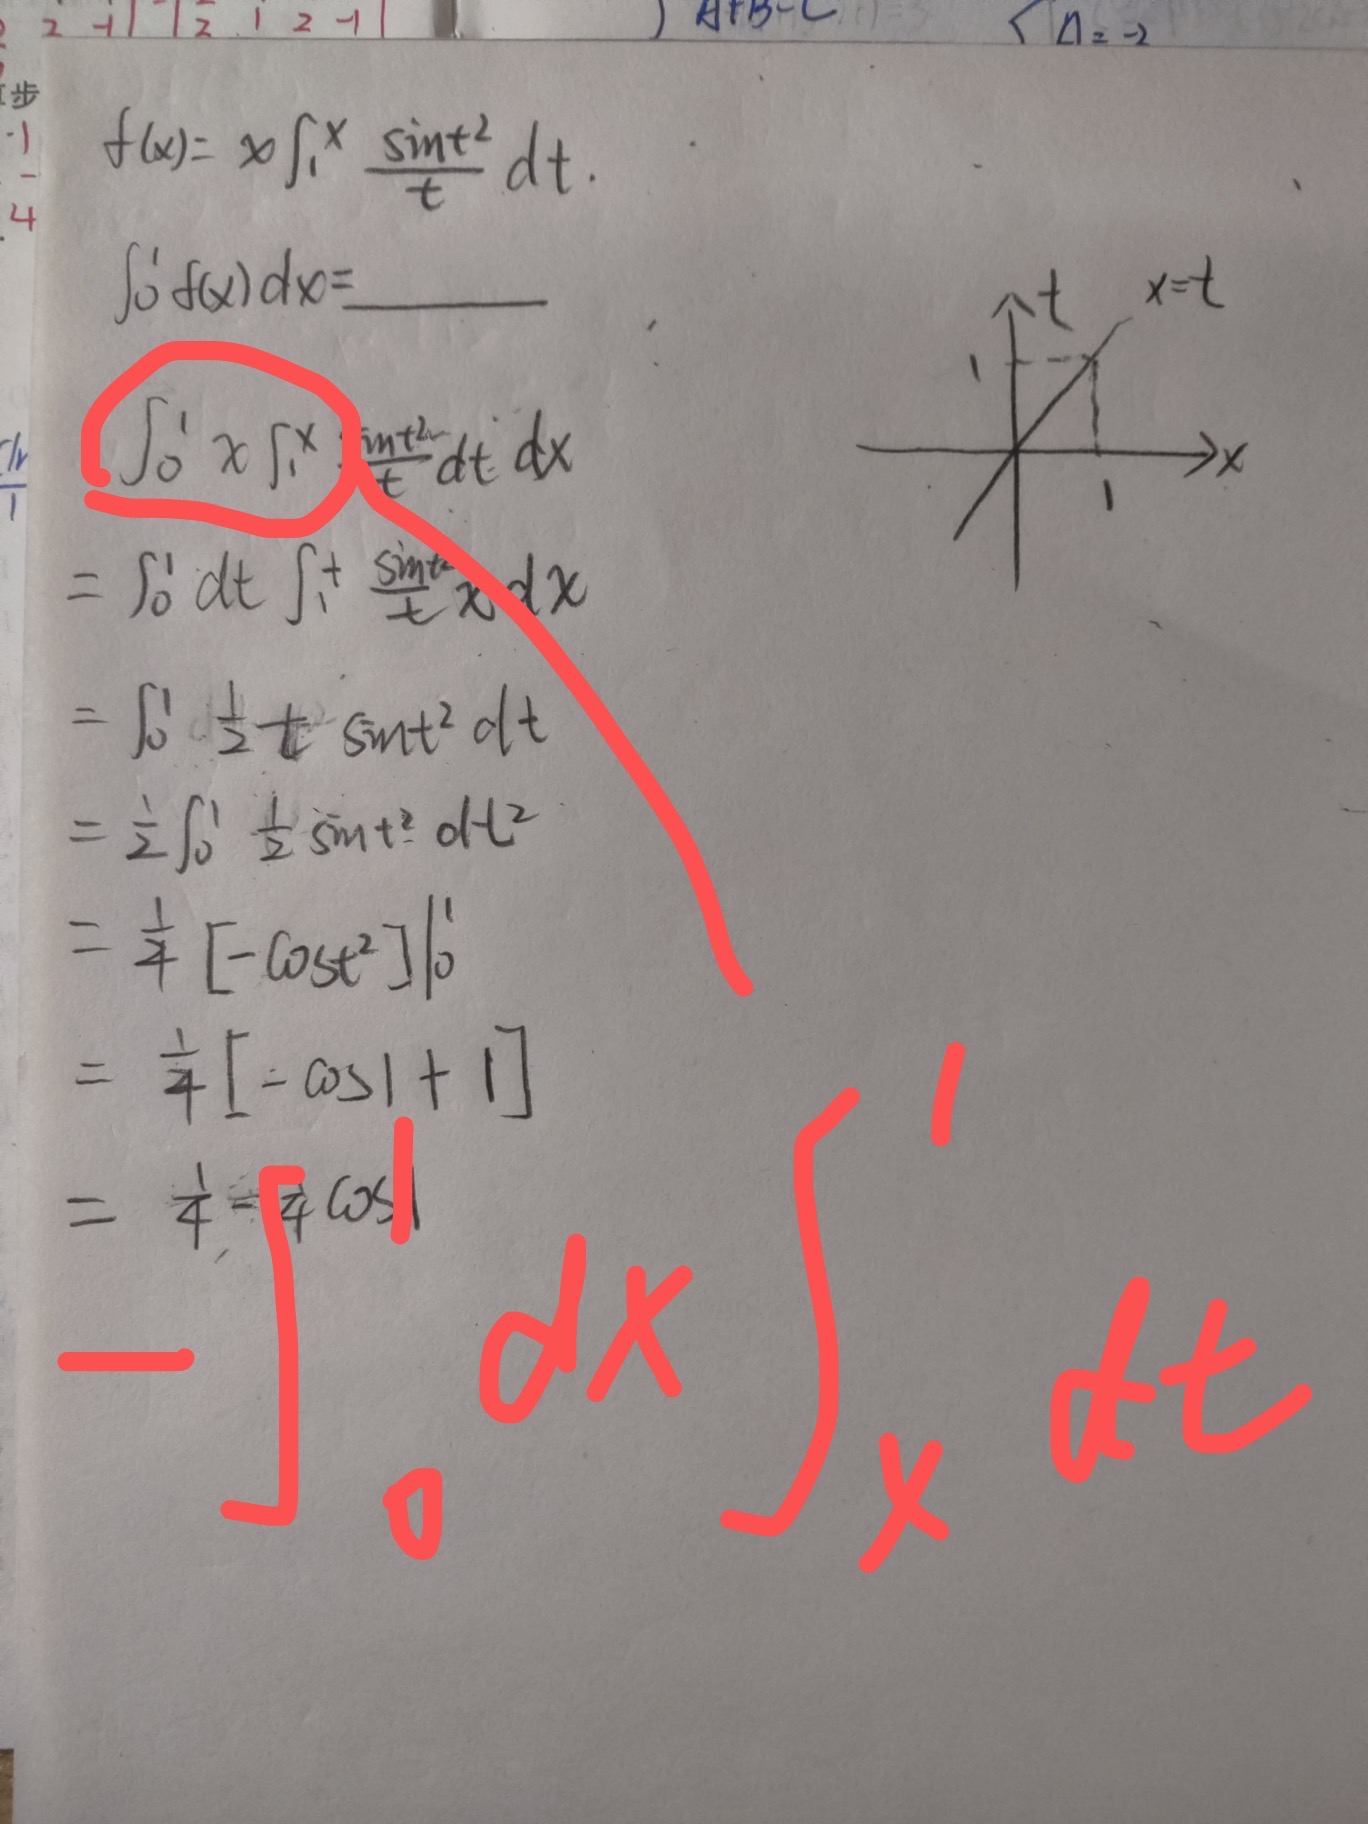 2 -1 | 2 1 2 -1 |
) A+B-C
{ A=-2
步
-1
-
4
f(x)= x∫₁ˣ sint²/t dt.
∫₀¹ f(x)dx=______
t
x=t
1
x
1
∫₀¹ x ∫₁ˣ sint²/t dt dx
= ∫₀¹ dt ∫₁ᵗ sint²/t x dx
= ∫₀¹ 1/2 t sint² dt
= 1/2 ∫₀¹ 1/2 sint² dt²
= 1/4 [-cost²]|₀¹
= 1/4 [-cos1+1]
= 1/4 - 1/4 cos1
- ∫₀¹ dx ∫ₓ¹ dt